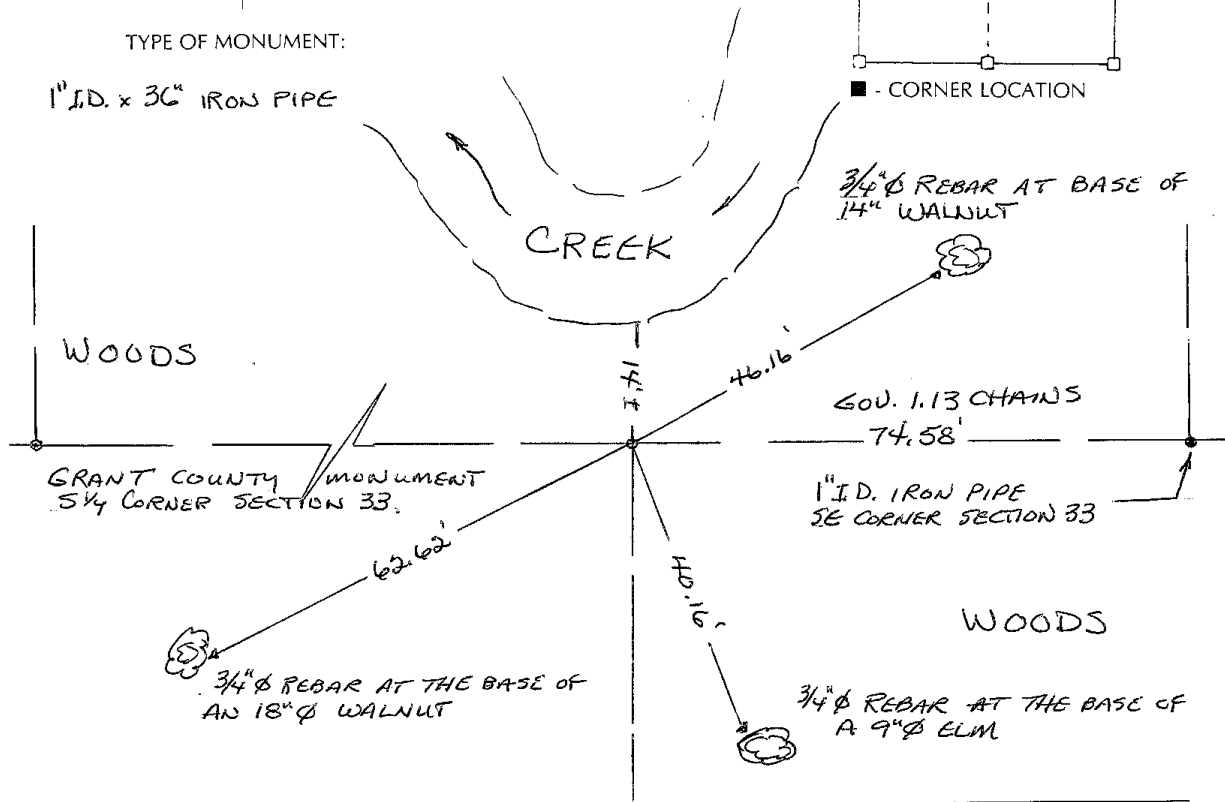 TYPE OF MONUMENT:
1" I.D. x 36" IRON PIPE
■ - CORNER LOCATION
3/4"Ø REBAR AT BASE OF
14" WALNUT
CREEK
WOODS
14'±
46.16'
GOV. 1.13 CHAINS
74.58'
GRANT COUNTY MONUMENT
S 1/4 CORNER SECTION 33.
1" I.D. IRON PIPE
SE CORNER SECTION 33
62.62'
40.16'
WOODS
3/4"Ø REBAR AT THE BASE OF
AN 18"Ø WALNUT
3/4"Ø REBAR AT THE BASE OF
A 9"Ø ELM